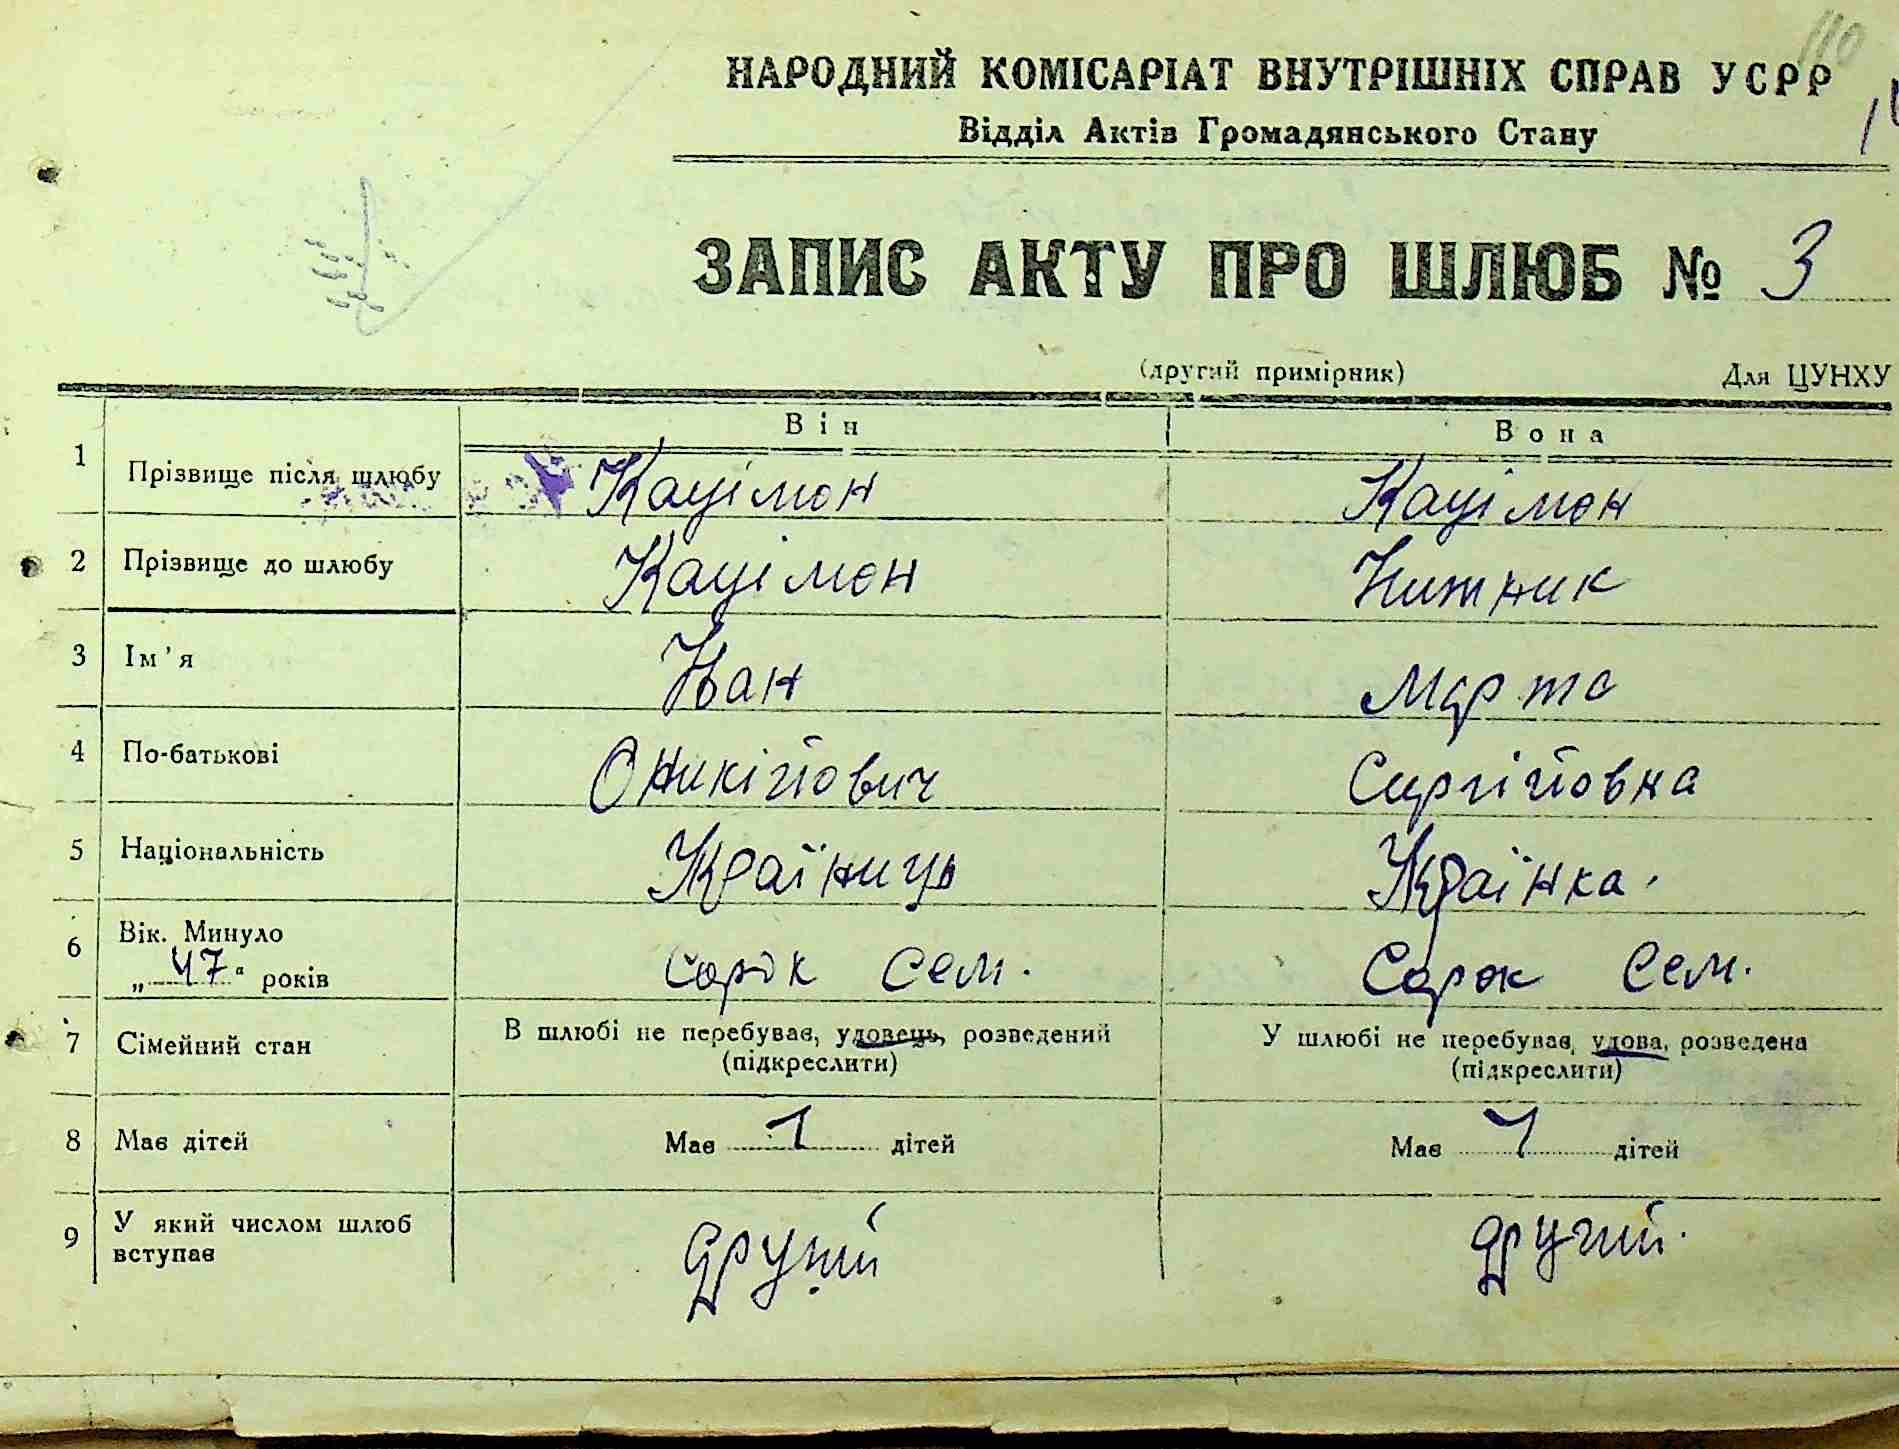 110
НАРОДНИЙ КОМІСАРІАТ ВНУТРІШНІХ СПРАВ УСРР
Відділ Актів Громадянського Стану
ЗАПИС АКТУ ПРО ШЛЮБ № 3
(другий примірник) Для ЦУНХУ
Він Вона
1 Прізвище після шлюбу Кацімон Кацімон
2 Прізвище до шлюбу Кацімон Нижник
3 Ім'я Іван Марта
4 По-батькові Оникійович Сиргійовна
5 Національність Україниць Українка.
6 Вік. Минуло „47“ років Сорок Сем. Сорок Сем.
7 Сімейний стан В шлюбі не перебував, удовець, розведений У шлюбі не перебував, удова, розведена
(підкреслити) (підкреслити)
8 Має дітей Має 1 дітей Має 1 дітей
9 У який числом шлюб вступає другий другий.